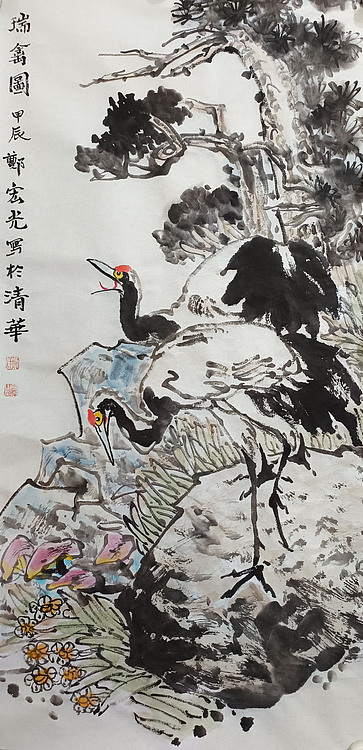 瑞禽圖 甲辰 鄭宏光寫於清華